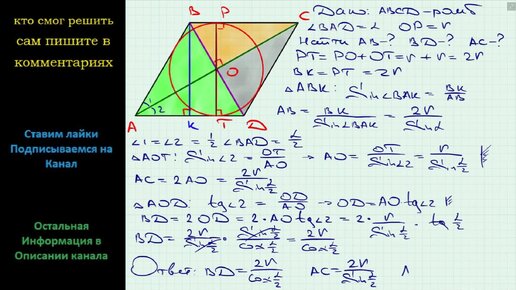 кто смог решить
сам пишите в
комментариях
Ставим лайки
Подписываемся на
Канал
Остальная
Информация в
Описании канала
B P C
O
1 2
A K T D
Дано: ABCD – ромб
∠BAD = α OP = r
Найти AB-? BD-? AC-?
PT = PO + OT = r + r = 2r
BK = PT = 2r
△ABK: Sin∠BAK = BK/AB
AB = BK/Sin∠BAK = 2r/Sinα
∠1 = ∠2 = 1/2 ∠BAD = α/2
△AOT: Sin∠2 = OT/AO → AO = OT/Sin∠2 = r/Sin α/2
AC = 2AO = 2r/Sin α/2
△AOD: tg∠2 = OD/AO → OD = AO tg∠2
BD = 2OD = 2·AO tg∠2 = 2· r/Sin α/2 · tg α/2
BD = 2r/Sin α/2 · Sin α/2/Cos α/2 = 2r/Cos α/2
Ответ: BD = 2r/Cos α/2 AC = 2r/Sin α/2